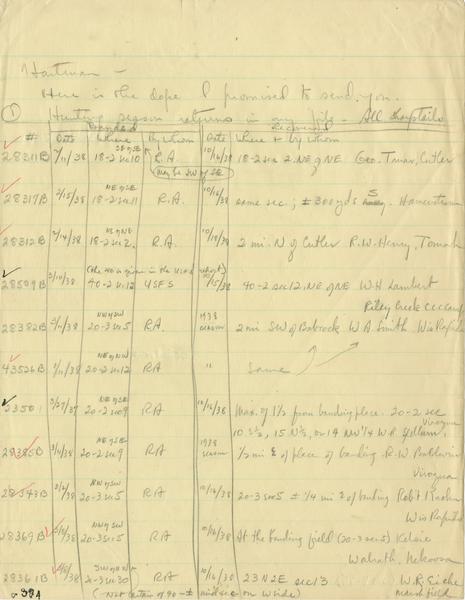 Hartman —
Here is the dope I promised to send you.
① Hunting season returns in my file - All sharptails
Banded Recovered
# Date Where By whom Date Where & by whom
28311B 2/11/38 18-2 sec 10 SE of SE R.A. 10/16/38 18-2 sec 2 NE of NE Geo. Cutler
(may be SW of SE)
28317B 2/15/38 NE of SE 18-2 sec 11 R.A. 10/16/38 same sec; ± 300 yds S
28312B 2/14/38 NE of NE 18-2 sec 2 R.A. 2 mi. N of Cutler R.W. Henry, Tomah
28509B 40-2 sec 12 USFS 10/15/38 40-2 sec 12, NE of NE W H Lambert
Riley Creek CCC camp
28382B NW of SW 20-3 sec 5 RA. 1938 season 2 mi SW of Babcock W A Smith, Wis Rapids
43526B NE of NW 20-2 sec 12 RA " same
23501 3/27/37 NE of SE 20-2 sec 9 RA 10/16/38 Max. of 1½ from banding place. 20-2 sec
10 S½, 15 N½, or 14 NW ¼ W.R.
Viroqua
28385B NE of SE 20-2 sec 9 RA 1938 season ½ mi E of place of banding R.W. Baldwin
Viroqua
28343B NW of SW 20-3 sec 5 RA 10/16/38 20-3 sec 5 ± ¼ mi E of banding Rob't
Wis Rapids
28369B NW of SW 20-3 sec 5 RA 10/16/38 At the banding field (20-3 sec 5) Kelsie
Walrath, Nekoosa
28361B sec 30 RA 23 N 2 E sec 13 W.R.
(- Not certain of on W side) Marshfield